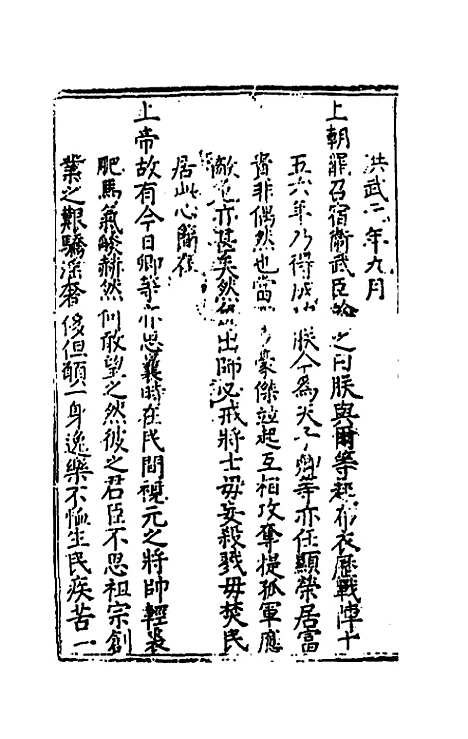 洪武二年九月
上朝罷召宿衛武臣諭之曰朕與爾等起布衣歷戰陣十
五六年乃得成功朕今為天子爾等亦任顯榮居富
貴非偶然也當 豪傑並起互相攻奪提孤軍應
敵 亦甚矣然 出師必戒將士毋妄殺戮毋焚民
居此心簡在
上帝故有今日卿等亦思曩時在民間視元之將帥輕裘
肥馬氣燄赫然何敢望之然彼之君臣不思祖宗創
業之艱驕淫奢侈但顧一身逸樂不恤生民疾苦一